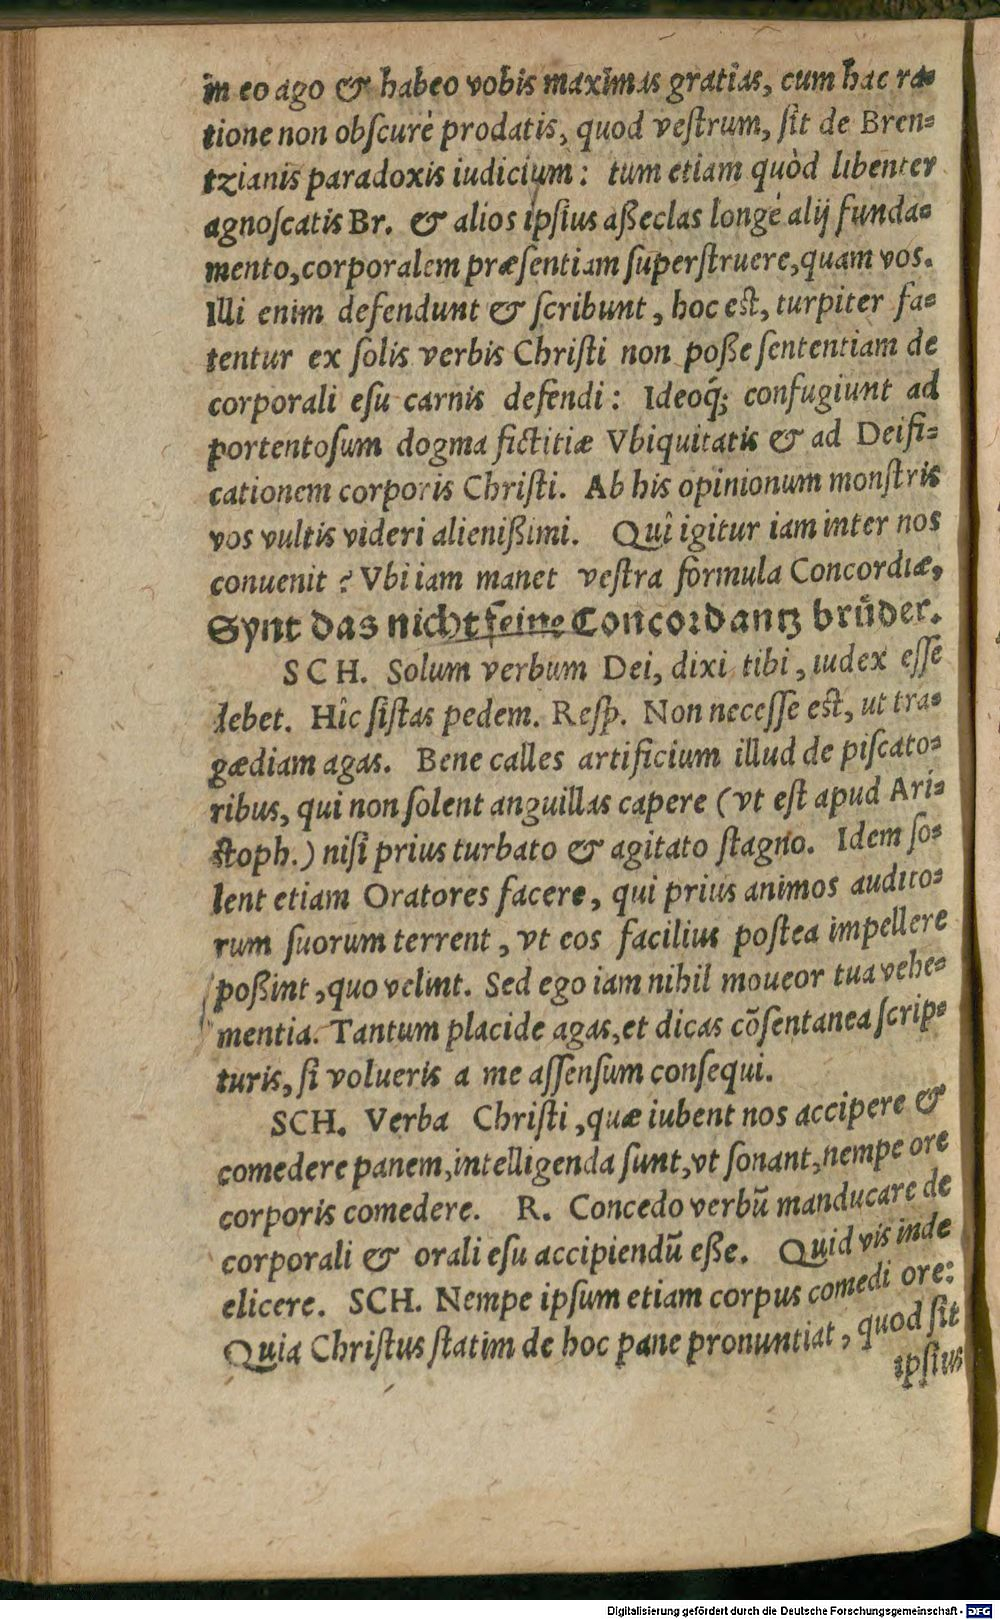 in eo ago & habeo vobis maximas gratias, cum hac ra=
tione non obſcurè prodatis, quod veſtrum, ſit de Bren=
tzianis paradoxis iudicium: tum etiam quòd libenter
agnoſcatis Br. & alios ipſius aßeclas longè alij funda=
mento, corporalem præſentiam ſuperſtruere, quam vos.
Illi enim defendunt & ſcribunt, hoc eſt, turpiter fa=
tentur ex ſolis verbis Chriſti non poße ſententiam de
corporali eſu carnis defendi: Ideoq́; confugiunt ad
portentoſum dogma fictitiæ Vbiquitatis & ad Deifi=
cationem corporis Chriſti. Ab his opinionum monſtris
vos vultis videri alienißimi. Quî igitur iam inter nos
conuenit? Vbi iam manet veſtra formula Concordiæ,
Synt das nicht feine Concordantz brüder.
SCH. Solum verbum Dei, dixi tibi, iudex eſſe
debet. Hîc ſiſtas pedem. Reſp. Non neceſſe eſt, ut tra=
gædiam agas. Bene calles artificium illud de piſcato=
ribus, qui non ſolent anguillas capere (vt eſt apud Ari=
ſtoph.) niſi prius turbato & agitato ſtagno. Idem ſo=
lent etiam Oratores facere, qui prius animos audito=
rum ſuorum terrent, vt eos facilius poſtea impellere
poßint, quo velint. Sed ego iam nihil moueor tua vehe=
mentia. Tantum placide agas, et dicas cõſentanea ſcrip=
turis, ſi volueris a me aſſenſum conſequi.
SCH. Verba Chriſti, quæ iubent nos accipere &
comedere panem, intelligenda ſunt, vt ſonant, nempe ore
corporis comedere. R. Concedo verbũ manducare de
corporali & orali eſu accipiendũ eße. Quid vis inde
elicere. SCH. Nempe ipſum etiam corpus comedi ore:
Quia Chriſtus ſtatim de hoc pane pronuntiat, quod ſit
ipſius
Digitalisierung gefördert durch die Deutsche Forschungsgemeinschaft - DFG